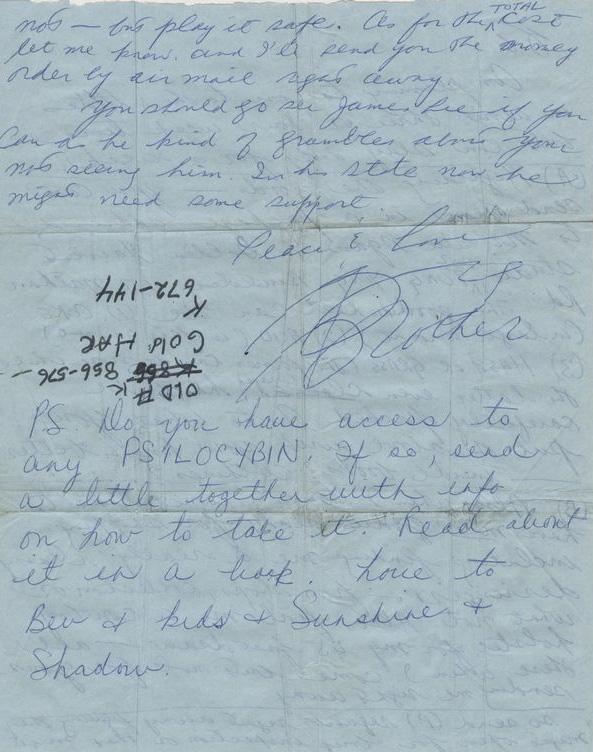 not — but play it safe. As for the TOTAL cost
let me know and I'll send you the money
order by air mail right away.
You should go see James Lee if you
can as he kind of grumbles about your
not seeing him. In his state now he
might need some support.
Peace & Love
Brother
OLD # K
K 866 856-576 —
GOld HAR
K
672-144
PS. Do you have access to
any PSILOCYBIN. If so, send
a little together with info
on how to take it. Read about
it in a book. Love to
Bev & kids & Sunshine &
Shadow.